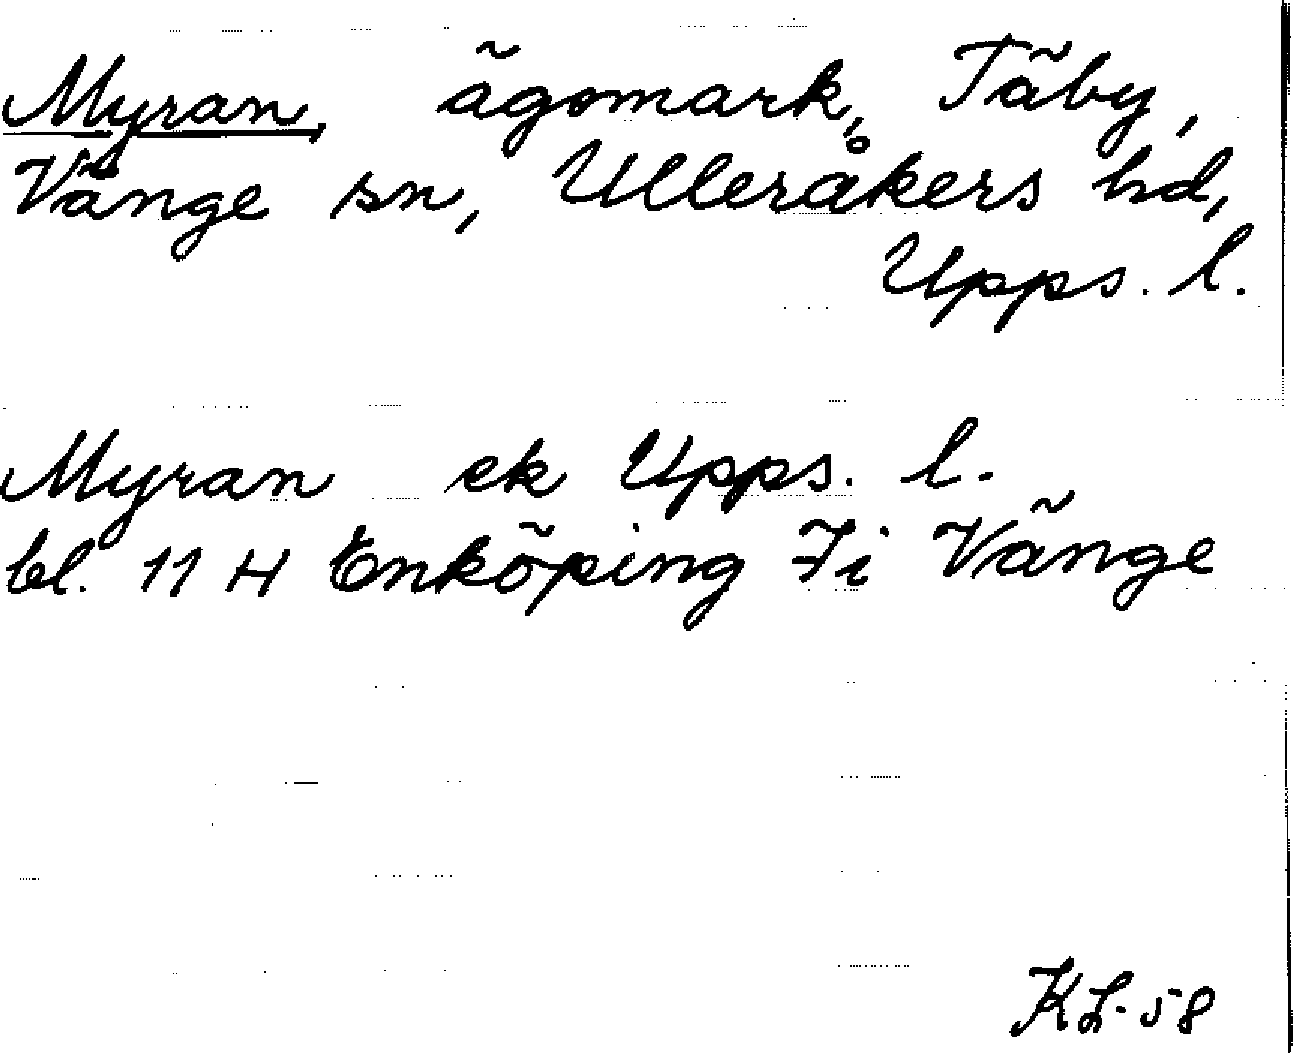 Myran, ägomark, Täby,
Vänge sn, Ulleråkers hd,
Upps. l.
Myran ek Upps. l.
bl. 11 H Enköping 7i Vänge
KL-58